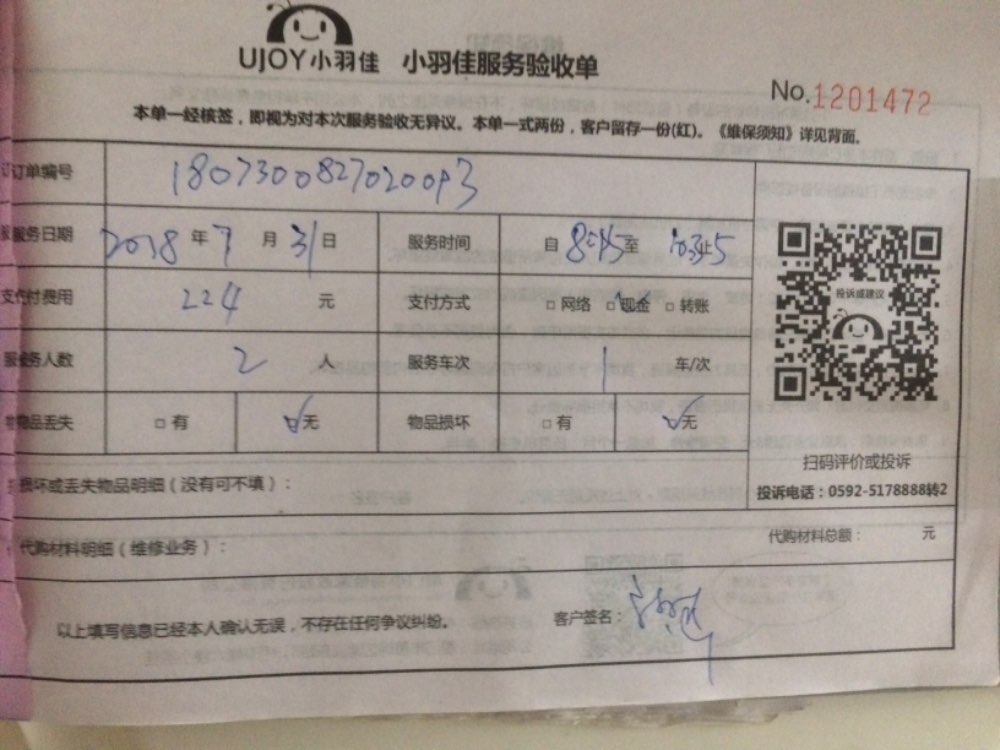 UJOY小羽佳 小羽佳服务验收单
No.1201472
本单一经核签，即视为对本次服务验收无异议。本单一式两份，客户留存一份(红)。《维保须知》详见背面。
订单编号 180730082702
服务日期 2018 年 7 月 31 日 服务时间 自 8:45 至
支付费用 224 元 支付方式 □ 网络 □ 现金 □ 转账
服务人数 2 人 服务车次 1 车/次
物品丢失 □ 有 □ 无 物品损坏 □ 有 □ 无
投诉或建议
扫码评价或投诉
投诉电话：0592-5178888转2
损坏或丢失物品明细（没有可不填）：
代购材料明细（维修业务）： 代购材料总额： 元
以上填写信息已经本人确认无误，不存在任何争议纠纷。 客户签名：